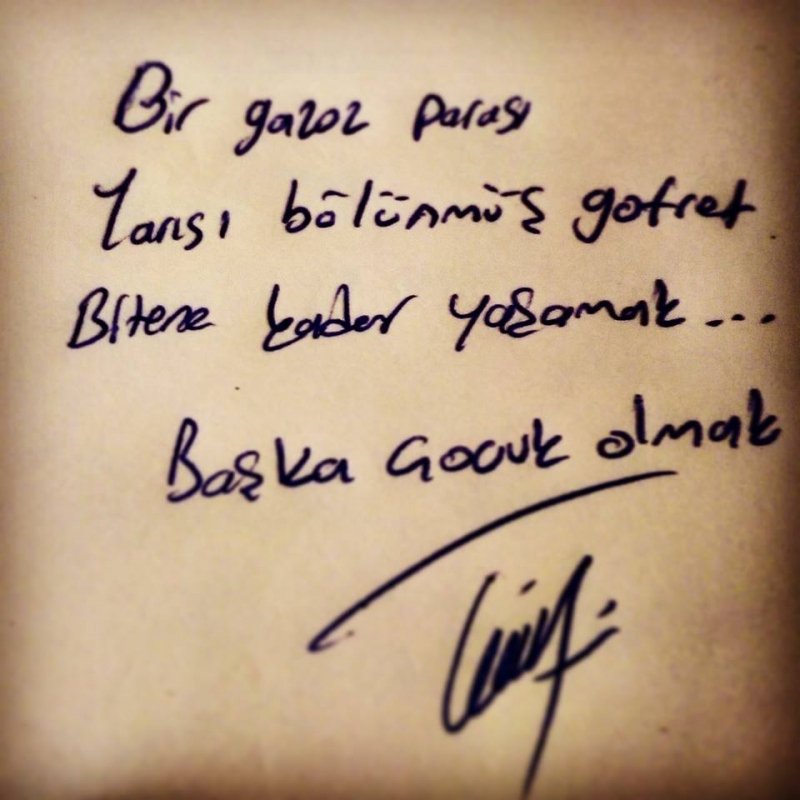 Bir gazoz parası
Yarısı bölünmüş gofret
Bitene kader yaşamak...
Başka Çocuk olmak